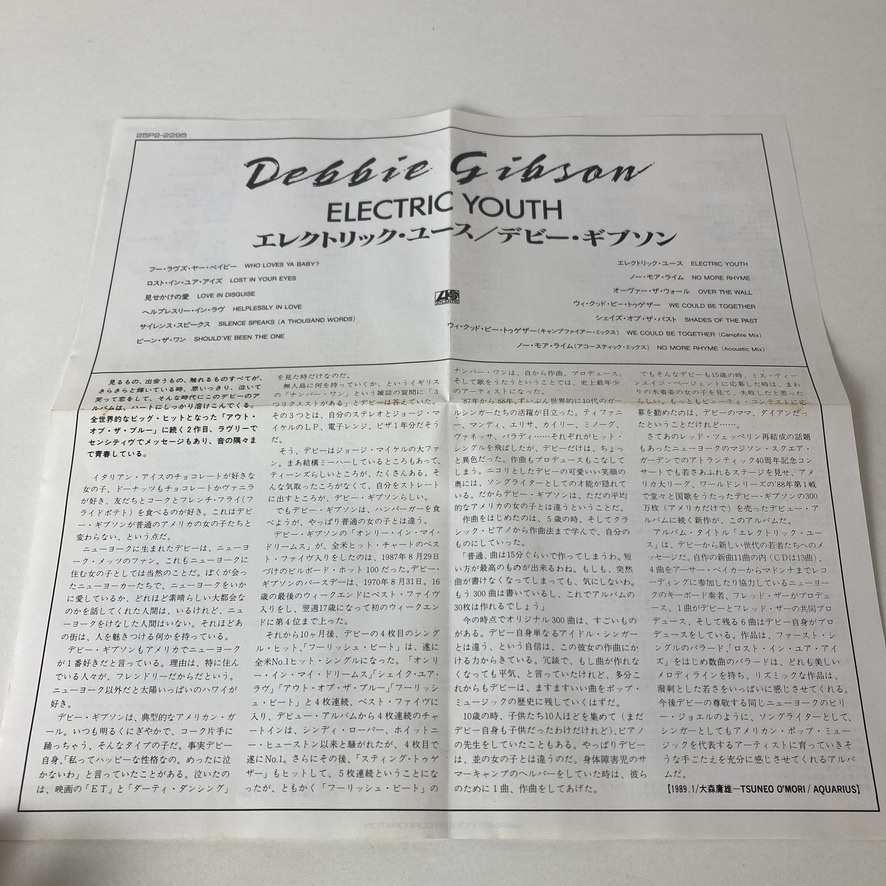 25P2-2295
Debbie Gibson
ELECTRIC YOUTH
エレクトリック・ユース／デビー・ギブソン
フー・ラヴズ・ヤー・ベイビー WHO LOVES YA BABY?
ロスト・イン・ユア・アイズ LOST IN YOUR EYES
見せかけの愛 LOVE IN DISGUISE
ヘルプレスリー・イン・ラヴ HELPLESSLY IN LOVE
サイレンス・スピークス SILENCE SPEAKS (A THOUSAND WORDS)
ビーン・ザ・ワン SHOULD'VE BEEN THE ONE
エレクトリック・ユース ELECTRIC YOUTH
ノー・モア・ライム NO MORE RHYME
オーヴァー・ザ・ウォール OVER THE WALL
ウィ・クッド・ビー・トゥゲザー WE COULD BE TOGETHER
シェイズ・オブ・ザ・パスト SHADES OF THE PAST
ウィ・クッド・ビー・トゥゲザー(キャンプファイアー・ミックス) WE COULD BE TOGETHER (Campfire Mix)
ノー・モア・ライム(アコースティック・ミックス) NO MORE RHYME (Acoustic Mix)
見るもの、出会うもの、触れるものすべてが、
きらきらと輝いている時、思いっきり、泣いて
笑って恋をして、そんな時代にこのデビーのア
ルバムは、ハートにしっかり溶けこんでくる。
全世界的なビッグ・ヒットとなった「アウト・
オブ・ザ・ブルー」に続く2作目、ラヴリーで
センシティヴでメッセージもあり、音の隅々ま
で青春している。
イタリアン・アイスのチョコレートが好きな
女の子、ドーナッツもチョコレートかヴァニラ
が好き、友だちとコークとフレンチ・フライ(フ
ライドポテト)を食べるのが好き。これはデビ
ー・ギブソンが普通のアメリカの女の子たちと
変わらない、という点だ。
ニューヨークに生まれたデビーは、ニューヨ
ーク・メッツのファン。これもニューヨークに
住む女の子としては当然のことだ。ぼくが会っ
たニューヨーカーたちで、ニューヨークをいか
に愛しているか、どれほど素晴らしい大都会な
のかを話してくれた人間は、いるけれど、ニュ
ーヨークをけなした人間はいない。それほどあ
の街は、人を魅きつける何かを持っている。
デビー・ギブソンもアメリカでニューヨーク
が1番好きだと言っている。理由は、特に住ん
でいる人々が、フレンドリーだからだという。
ニューヨーク以外だと太陽いっぱいのハワイが
好き。
デビー・ギブソンは、典型的なアメリカン・ガ
ール。いつも明るくにぎやかで、コーク片手に
踊っちゃう、そんなタイプの子だ。事実デビー
自身、「私ってハッピーな性格なの。めったに泣
かないわ」と言っていたことがある。泣いたの
は、映画の「ET」と「ダーティ・ダンシング」
を見た時だけなのだ。
無人島に何を持っていくか、というイギリス
の「ナンバー・ワン」という雑誌の質問に「3
つリクエストがある」とデビーは答えていた。
その3つとは、自分のステレオとジョージ・マ
イケルのLP、電子レンジ、ピザ1年分だそう
だ。
そう、デビーはジョージ・マイケルの大ファ
ン。まあ結構ミーハーしているところもあって、
ティーンズらしいところが、たくさんある。そ
んな気取ったころがなくて、自分をストレート
に出すところが、デビー・ギブソンらしい。
でもデビー・ギブソンは、ハンバーガーを食
べようが、やっぱり普通の女の子とは違う。
デビー・ギブソンの「オンリー・イン・マイ・
ドリームス」が、全米ヒット・チャートのベス
ト・ファイヴ入りをしたのは、1987年8月29日
づけのビルボード・ホット100だった。デビー・
ギブソンのバースデーは、1970年8月31日。16
歳の最後のウィークエンドにベスト・ファイヴ
入りをし、翌週17歳になって初のウィークエン
ドに第4位まで上った。
それから10ヶ月後、デビーの4枚目のシング
ル・ヒット、「フーリッシュ・ビート」は、遂に
全米No.1ヒット・シングルになった。「オンリ
ー・イン・マイ・ドリームス」「シェイク・ユア・
ラヴ」「アウト・オブ・ザ・ブルー」「フーリッシ
ュ・ビート」と4枚連続、ベスト・ファイヴに
入り、デビュー・アルバムから4枚連続のチャ
ートインは、シンディ・ローパー、ホイットニ
ー・ヒューストン以来と騒がれたが、4枚目で
遂にNo.1。さらにその後、「スティング・トゥゲ
ザー」もヒットして、5枚連続ということにな
ったが、ともかく「フーリッシュ・ビート」の
ナンバー・ワンは、自から作曲、プロデュース、
そして歌をうたうということでは、史上最年少
のアーティストになった。
'87年から'88年、ずいぶん世界的に10代のガー
ルシンガーたちの活躍が目立った。ティファニ
ー、マンディ、エリサ、カイリー、ミノーグ、
ヴァネッサ、パラディ……それぞれがヒット・
シングルを飛ばしたが、デビーだけは、ちょっ
と異色だった。作曲もプロデュースもこなして
しまう。ニコリとしたデビーの可愛いい笑顔の
奥には、ソングライターとしての才能が隠れて
いる。だからデビー・ギブソンは、ただの平均
的なアメリカの女の子とは違うということだ。
作曲をはじめたのは、5歳の時、そしてクラ
シック・ピアノから作曲法まで学んで、自分の
ものにしていった。
「普通、曲は15分ぐらいで作ってしまうわ。短
い方が最高のものが出来るわね。もしも、突然
曲が書けなくなってしまっても、気にしないわ。
もう300曲は書いているし、これでアルバムの
30枚は作れるでしょう」
今の時点でオリジナル300曲は、すごいもの
がある。デビー自身単なるアイドル・シンガー
とは違う、という自信は、この彼女の作曲にか
ける力からきている。冗談で、もし曲が作れな
くなっても平気、と言っていたけれど、多分こ
れからもデビーは、ますますいい曲をポップ・
ミュージックの歴史に残していくはずだ。
10歳の時、子供たち10人ほどを集めて(まだ
デビー自身も子供だったわけだけれど)、ピアノ
の先生をしていたこともある。やっぱりデビー
は、並の女の子とは違うのだ。身体障害児のサ
マーキャンプのヘルパーをしていた時は、彼ら
のために1曲、作曲をしてあげた。
でもそんなデビーも15歳の時、ミス・ティー
ンエイジ・ページェントに応募した時は、まわ
りの水着姿の女の子を見て、失敗したと思った
らしい。もっともビューティ・コンテストに応
募を勧めたのは、デビーのママ、ダイアンだっ
たということだけれど……。
さてあのレッド・ツェッペリン再結成の話題
もあったニューヨークのマジソン・スクエア・
ガーデンでのアトランティック40周年記念コン
サートでも若さあふれるステージを見せ、アメ
リカ大リーグ、ワールドシリーズの'88年第1戦
で堂々と国歌をうたったデビー・ギブソンの300
万枚(アメリカだけで)を売ったデビュー・ア
ルバムに続く新作が、このアルバムだ。
アルバム・タイトル「エレクトリック・ユー
ス」は、デビーから新しい世代の若者たちへのメ
ッセージだ。自作の新曲11曲の内(CDは13曲)、
4曲をアーサー・ベイカーからマドンナまでレコ
ーディングに参加したり協力しているニューヨー
クのキーボード奏者、フレッド・ザーがプロデュ
ース、1曲がデビーとフレッド・ザーの共同プロ
デュース、そして残る6曲はデビー自身がプロ
デュースをしている。作品は、ファースト・シ
ングルのバラード、「ロスト・イン・ユア・アイ
ズ」をはじめ数曲のバラードは、どれも美しい
メロディラインを持ち、リズミックな作品は、
溌剌とした若さをいっぱいに感じさせてくれる。
今後デビーの尊敬する同じニューヨークのビリ
ー・ジョエルのように、ソングライターとして、
シンガーとしてもアメリカン・ポップ・ミュー
ジックを代表するアーティストに育っていきそ
うな手ごたえを充分に感じさせてくれるアルバ
ムだ。
【1989.1/大森庸雄—TSUNEO O'MORI/AQUARIUS】